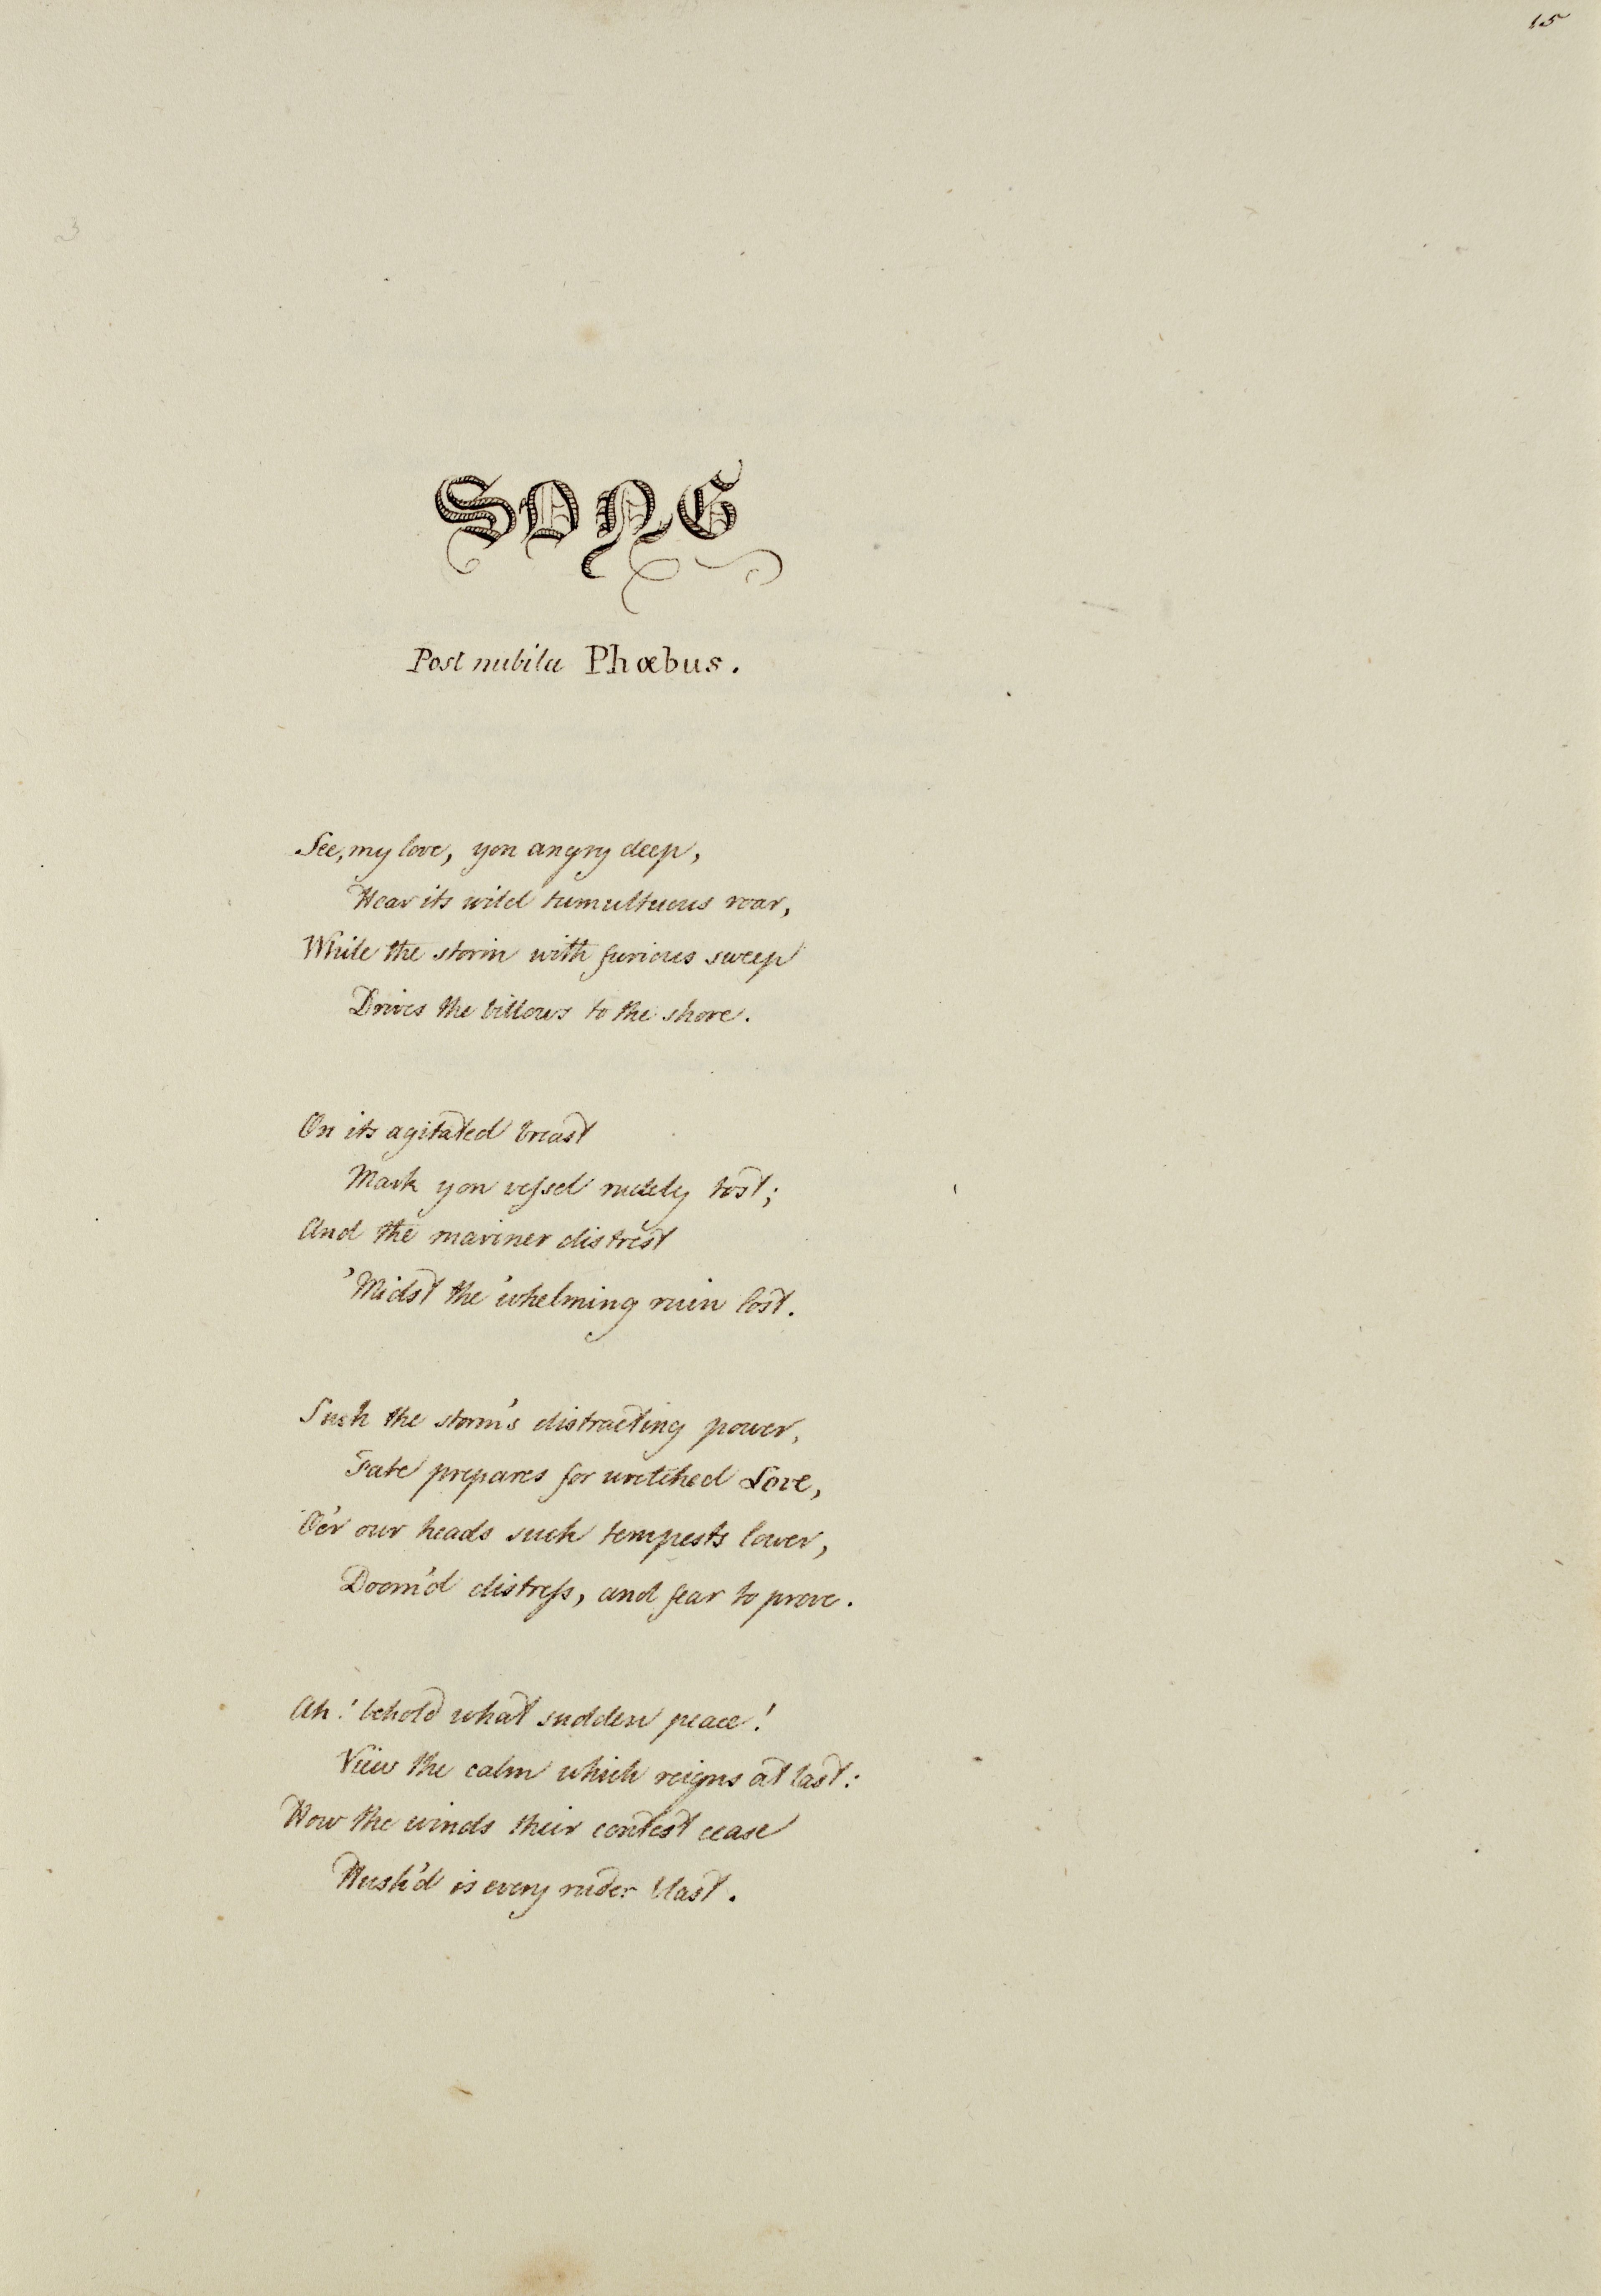 15
SONG
Post nubila Phœbus.
See, my love, yon angry deep,
Hear its wild tumultuous roar,
While the storm with furious sweep
Drives the billows to the shore.
On its agitated breast
Mark yon veſsel rudely tost;
And the mariner distrest
'Midst the 'whelming ruin lost.
Such the storm's distracting power,
Fate prepares for wretched Love,
O'er our heads such tempests lower,
Doom'd distreſs, and fear to prove.
Ah! behold what sudden peace!
View the calm which reigns at last:
How the winds their contest cease
Hush'd is every ruder blast.